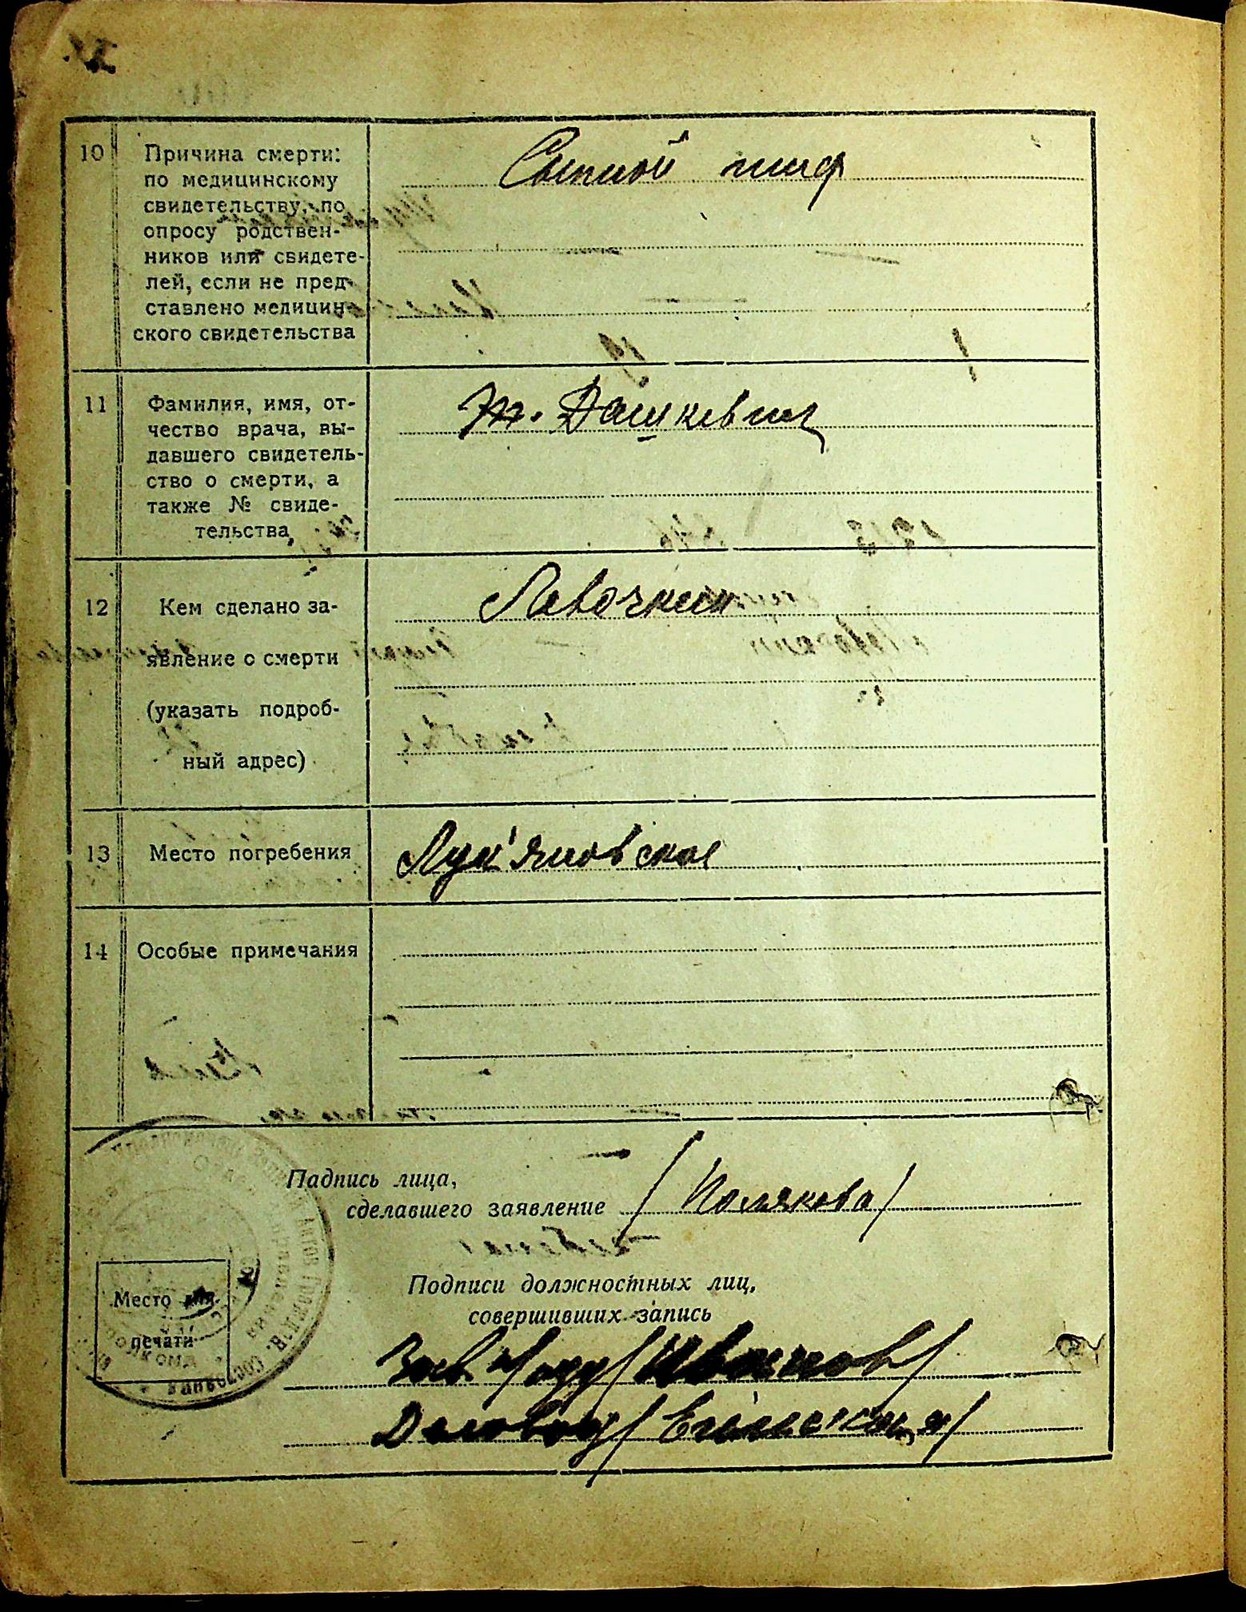 10
Причина смерти:
по медицинскому
свидетельству, по
опросу родствен-
ников или свидете-
лей, если не пред-
ставлено медицин-
ского свидетельства
Сыпной тиф
11
Фамилия, имя, от-
чество врача, вы-
давшего свидетель-
ство о смерти, а
также № свиде-
тельства
Дашкевич
12
Кем сделано за-
явление о смерти
(указать подроб-
ный адрес)
Лавочкин
13
Место погребения
Лук'яновское
14
Особые примечания
Падпись лица,
сделавшего заявление /Полякова/
Подписи должностных лиц,
совершивших запись
Место для
печати
Зав. /Иванов/
Деловод/